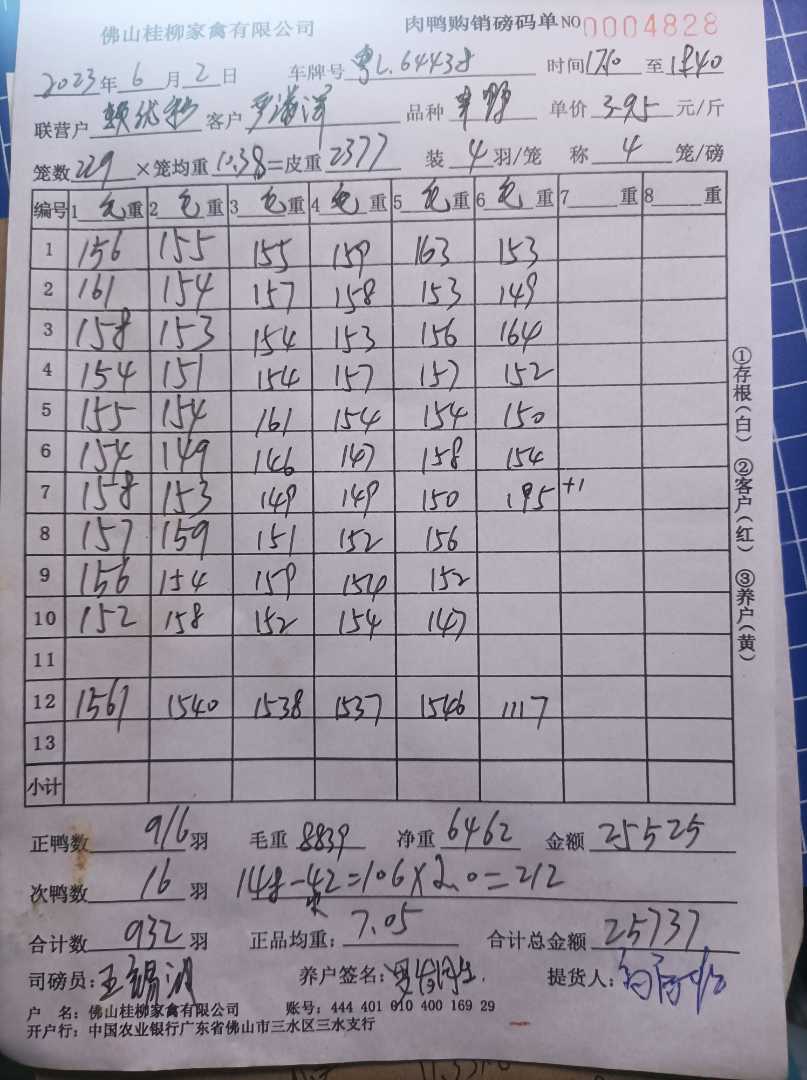 佛山桂柳家禽有限公司 肉鸭购销磅码单 NO 0004828
2023年 6月 2日 车牌号 粤L.64438 时间 1710 至 1840
联营户 客户 品种 单价 3.95 元/斤
笼数 229 ×笼均重 10.38 =皮重 2377 装 4 羽/笼 称 4 笼/磅
编号 1 毛重 2 毛重 3 毛重 4 毛重 5 毛重 6 毛重 7 重 8 重
1 156 155 155 159 163 153
2 161 154 157 158 153 149
3 158 153 154 153 156 164
4 154 151 154 157 157 152
5 155 154 161 154 154 150
6 154 149 146 147 158 154
7 158 153 149 149 150 195 +1
8 157 159 151 152 156
9 156 154 159 154 152
10 152 158 152 154 147
11
12 1561 1540 1538 1537 1546 1117
13
小计
正鸭数 916 羽 毛重 8839 净重 6462 金额 25525
次鸭数 16 羽 148-42=106×2.0=212
合计数 932 羽 正品均重: 7.05 合计总金额 25737
司磅员: 王锡波 养户签名: 提货人:
户 名: 佛山桂柳家禽有限公司 账号: 444 401 010 400 169 29
开户行: 中国农业银行广东省佛山市三水区三水支行
①存根(白) ②客户(红) ③养户(黄)